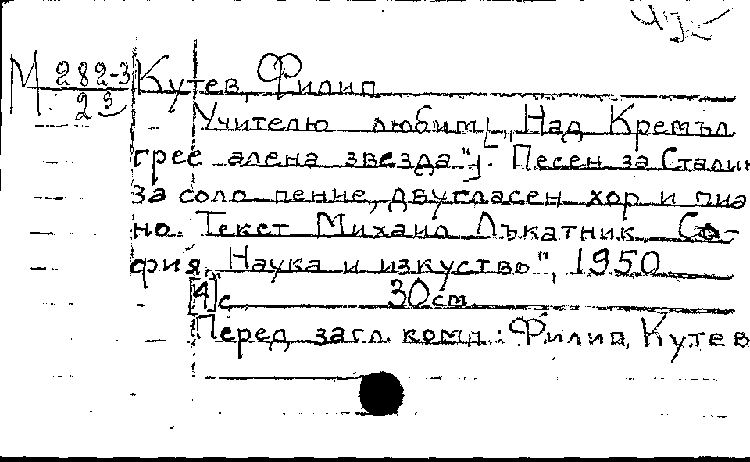 М 282-3 Кутев, Филип
23
Учителю любим [„Над Кремъл
грее алена звезда"]. Песен за Сталин
за соло пение, двугласен хор и пиа
но. Текст Михаил Лъкатник. Со-
фия, „Наука и изкуство", 1950
[4] с. 30 см.
Перед загл. комп.: Филип Кутев